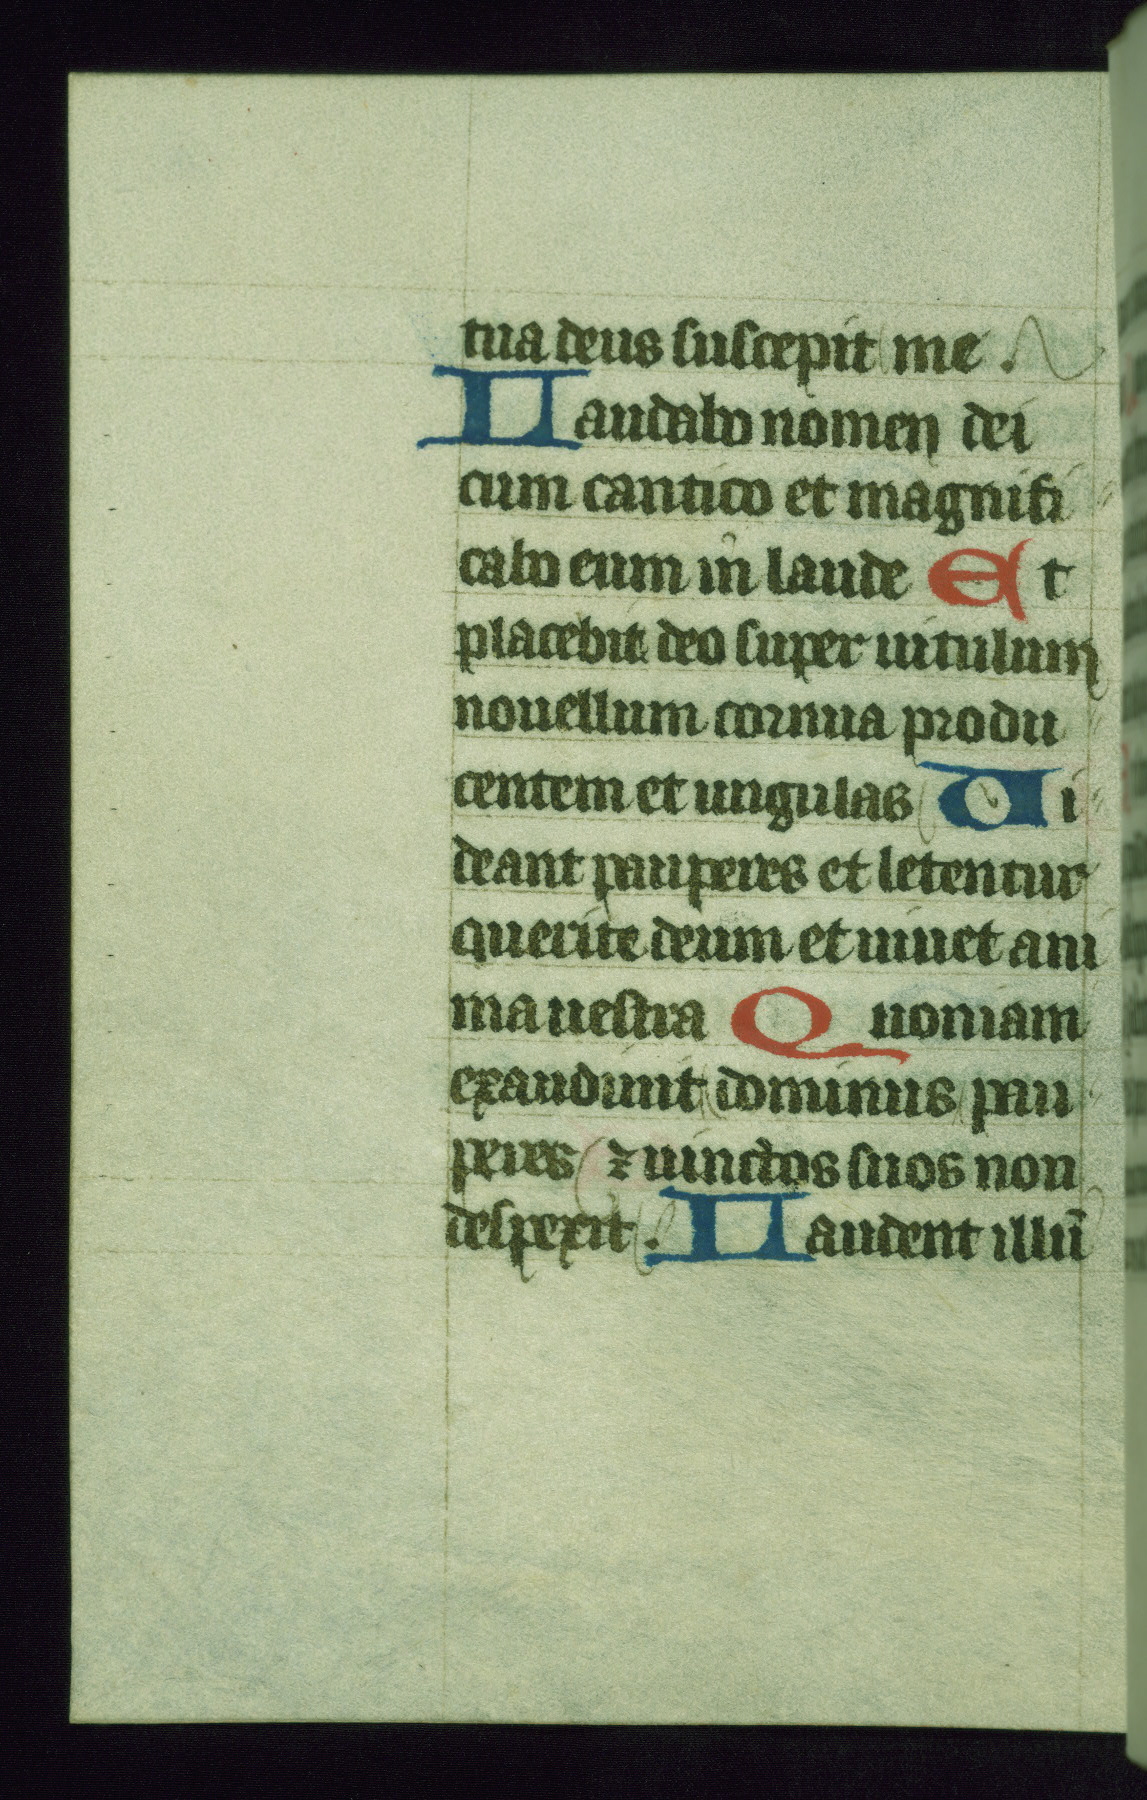 tua deus suscepit me .
Laudabo nomen dei
cum cantico et magnifi
cabo eum in laude Et
placebit deo super uitulum
nouellum cornua produ
centem et ungulas Ui
deant pauperes et letentur
querite deum et uiuet ani
ma uestra Quoniam
exaudiuit dominus pau
peres ⁊ uinctos suos non
despexit . Laudent illū